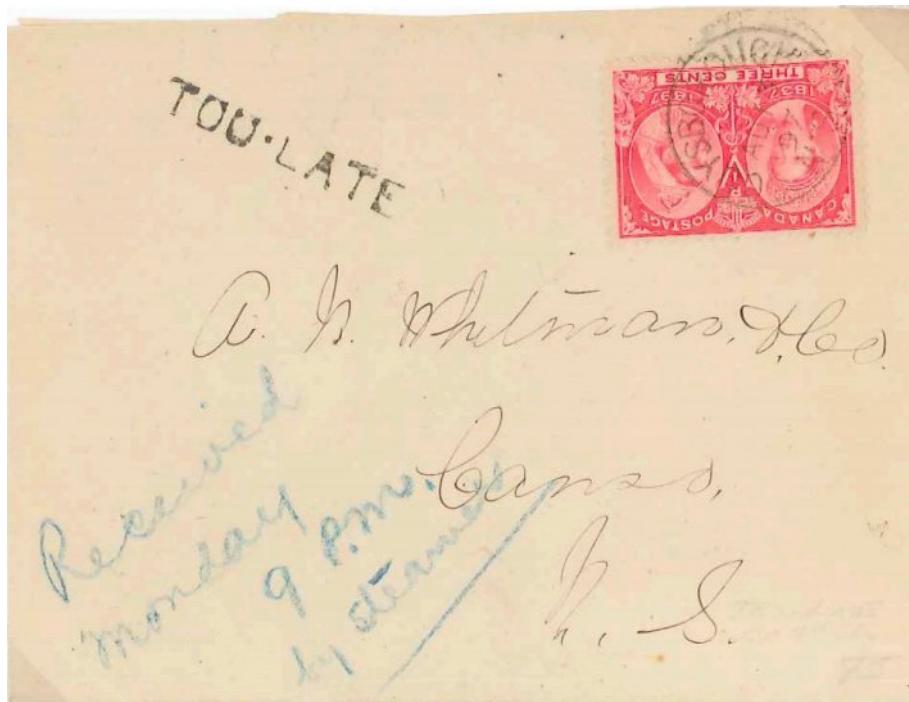 TOO·LATE
THREE CENTS
1837 1897
CANADA POSTAGE
AU
97
A. N. Whitman, & Co
Canso,
N. S.
Received
Monday
9 P.M.
by steamer